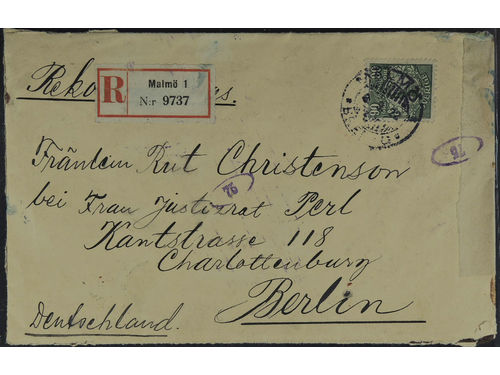 Reko
R
Malmö 1
N:r 9737
Fräulein Rut Christenson
bei Frau Justizrat Perl
Kantstrasse 118
Charlottenburg
Berlin
Deutschland.
76